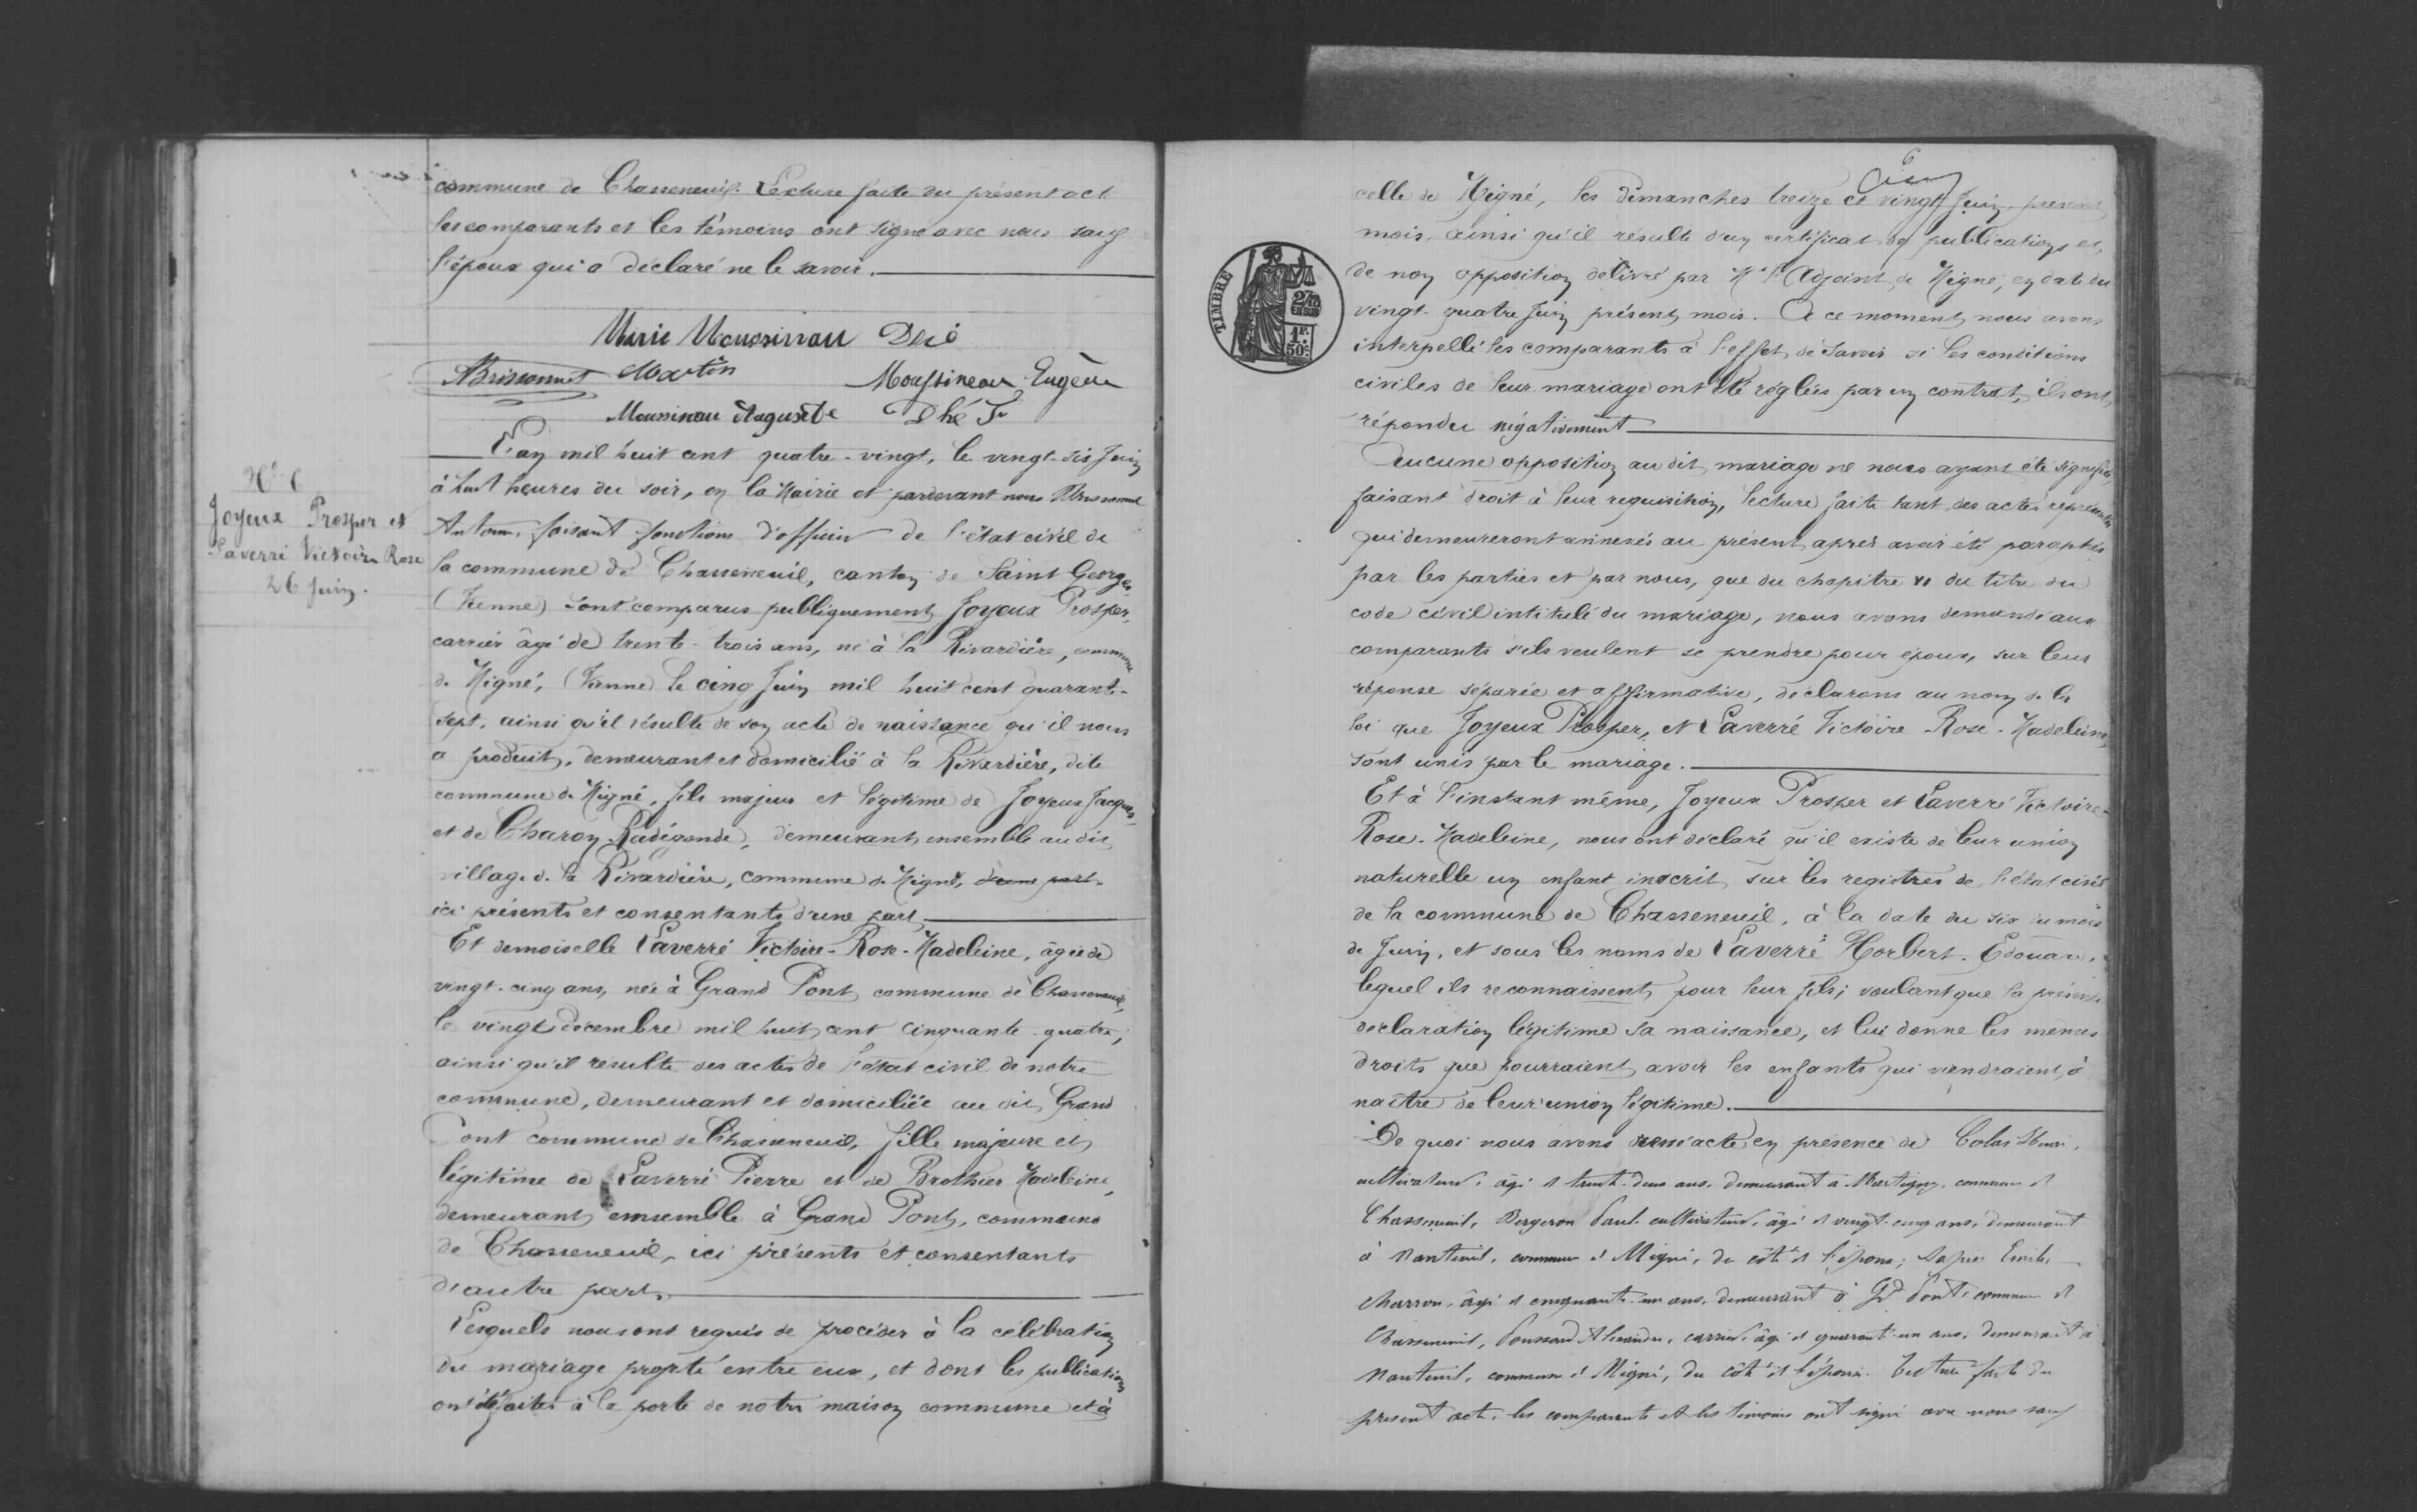 commune de Chasseneuil. Lecture faite du présent acte
les comparants et les témoins ont signé avec nous sauf
l'époux qui a déclaré ne le savoir.
Marie Moussineau
Brissonnet Martin Moussineau Eugène
Moussineau Auguste
N° 6
Joyeux Prosper et
Laverré Victoire Rose
26 Juin.
L'an mil huit cent quatre-vingt, le vingt-six Juin
à huit heures du soir, en la Mairie et pardevant nous Brissonnet
Antoine, faisant fonctions d'officier de l'état civil de
la commune de Chasseneuil, canton de Saint Georges,
(Vienne) sont comparus publiquement Joyeux Prosper,
carrier âgé de trente-trois ans, né à la Rivardière, commune
de Migné, (Vienne) le cinq Juin mil huit cent quarante-
sept, ainsi qu'il résulte de son acte de naissance qu'il nous
a produit, demeurant et domicilié à la Rivardière, dite
commune de Migné, fils majeur et légitime de Joyeux Jacques,
et de Charon Radégonde, demeurant ensemble au dit
village de la Rivardière, commune de Migné, d'une part.
ici présents et consentants d'une part.
Et demoiselle Laverré Victoire-Rose-Madeleine, âgée de
vingt-cinq ans, née à Grand Pont commune de Chasseneuil,
le vingt décembre mil huit cent cinquante-quatre,
ainsi qu'il résulte des actes de l'état civil de notre
commune, demeurant et domiciliée au dit Grand
Pont commune de Chasseneuil, fille majeure et
légitime de Laverré Pierre et de Brothier Madeleine,
demeurant ensemble à Grand Pont, commune
de Chasseneuil, ici présents et consentants
d'autre part.
Lesquels nous ont requis de procéder à la célébration
du mariage projeté entre eux, et dont les publications
ont été faites à la porte de notre maison commune et à
6
celle de Migné, les dimanches treize et vingt Juin, présent
mois, ainsi qu'il résulte d'un certificat de publications et
de non opposition délivré par Mr l'Adjoint de Migné, en date du
vingt-quatre Juin présent mois. A ce moment nous avons
interpellé les comparants à l'effet de savoir si les conditions
civiles de leur mariage ont été réglées par un contrat, ils ont
répondu négativement
TIMBRE
2/10
EN SUS
1F.
50C.
Aucune opposition au dit mariage ne nous ayant été signifiée,
faisant droit à leur requisition, lecture faite tant des actes représentés
qui demeureront annexés au présent après avoir été paraphés
par les parties et par nous, que du chapitre VI du titre du
code civil intitulé du mariage, nous avons demandé aux
comparants s'ils veulent se prendre pour époux, sur leur
réponse séparée et affirmative, déclarons au nom de la
loi que Joyeux Prosper, et Laverré Victoire-Rose-Madeleine,
sont unis par le mariage.
Et à l'instant même, Joyeux Prosper et Laverré Victoire-
Rose-Madeleine, nous ont déclaré qu'il existe de leur union
naturelle un enfant inscrit sur les registres de l'état civil
de la commune de Chasseneuil, à la date du six du mois
de Juin, et sous les noms de Laverré Horbert-Edouard,
lequel ils reconnaissent pour leur fils; voulant que la présente
déclaration légitime sa naissance, et lui donne les mêmes
droits que pourraient avoir les enfants qui viendraient à
naître de leur union légitime.
De quoi nous avons dressé acte en présence de Colas Henri,
cultivateur, âgé de trente-deux ans, demeurant à Martigny, commune de
Chasseneuil, Bergeron Paul cultivateur, âgé de vingt-cinq ans, demeurant
à Nanteuil, commune de Migné, du côté de l'époux; Emile,
charron, âgé de cinquante-un ans, demeurant à Gd Pont commune de
Chasseneuil, Poussard Alexandre, carrier, âgé de quarante-un ans, demeurant à
Nanteuil, commune de Migné, du côté de l'épouse. Lecture faite du
présent acte, les comparants et les témoins ont signé avec nous sauf